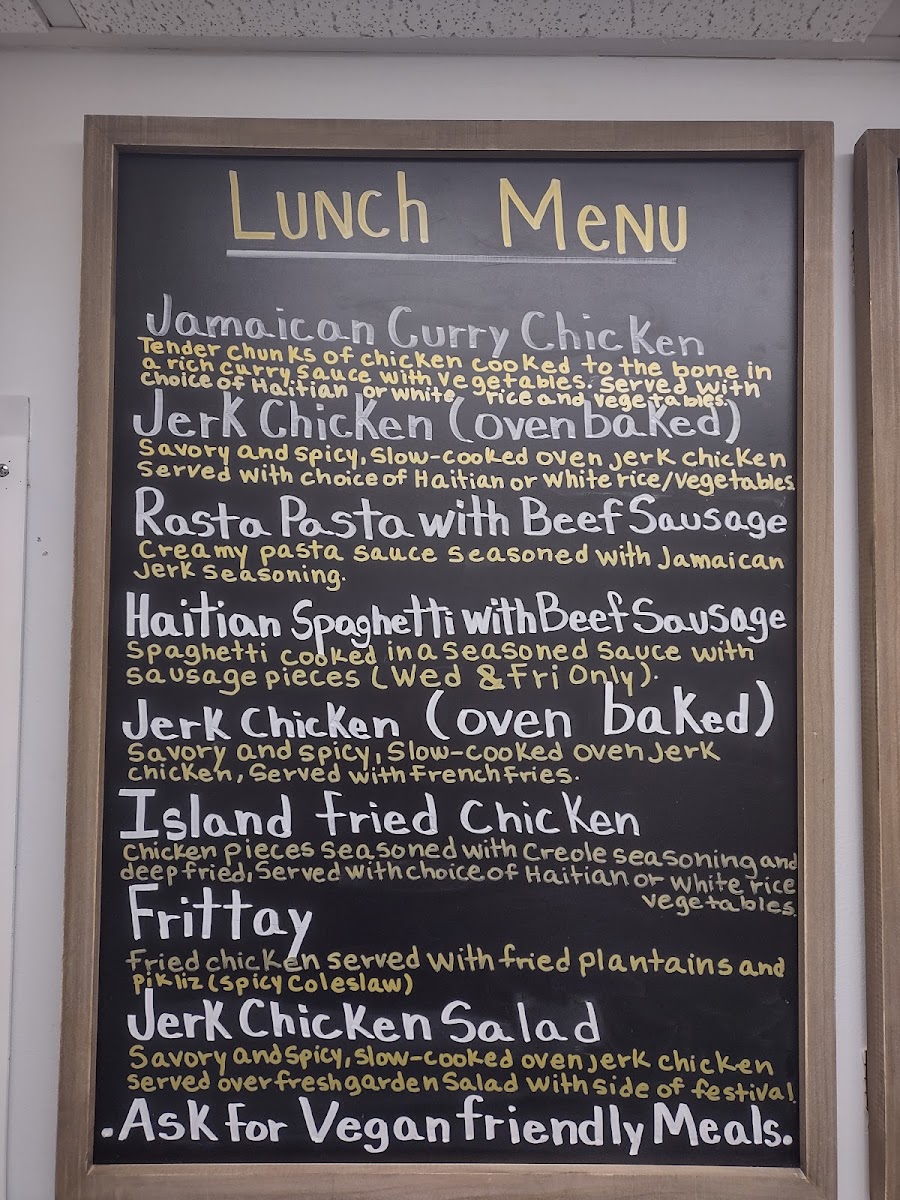 Lunch Menu
Jamaican Curry Chicken
Tender chunks of chicken cooked to the bone in
a rich curry sauce with vegetables. Served with
choice of Haitian or white rice and vegetables.
Jerk Chicken (oven baked)
Savory and spicy, slow-cooked oven jerk chicken
served with choice of Haitian or white rice/vegetables
Rasta Pasta with Beef Sausage
Creamy pasta sauce seasoned with Jamaican
Jerk seasoning.
Haitian Spaghetti with Beef Sausage
Spaghetti cooked in a seasoned sauce with
sausage pieces (Wed & Fri Only).
Jerk Chicken (oven baked)
Savory and spicy, slow-cooked oven Jerk
chicken, Served with French fries.
Island fried Chicken
Chicken pieces seasoned with Creole seasoning and
deep fried, Served with choice of Haitian or white rice
vegetables.
Frittay
Fried chicken served with fried plantains and
pikliz (spicy coleslaw)
Jerk Chicken Salad
Savory and spicy, slow-cooked oven jerk chicken
served over fresh garden Salad with side of festival
.Ask for Vegan friendly Meals.